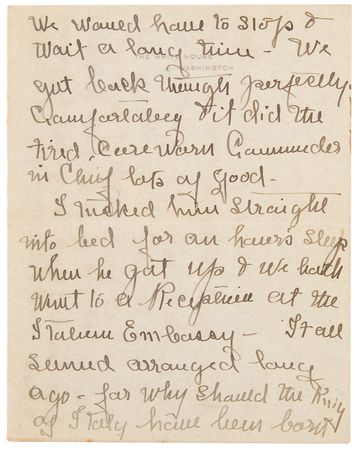 We would have to stop &
Wait a long time - We
THE WHITE HOUSE
WASHINGTON
got back though perfectly
Comfortabley & it did the
tired, Careworn Commander
in Chief lots of good.
I tucked him straight
into bed for an hours sleep
When he got up & we both
Went to a Reception at the
Italian Embassy - It all
seemed arranged long
ago - for why should the King
of Italy have been born